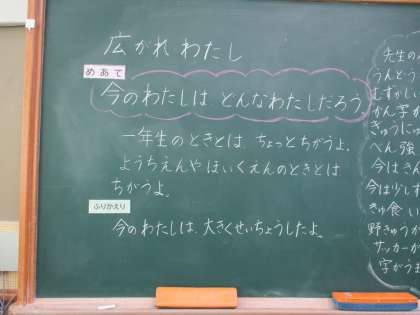 広がれ わたし
めあて
今のわたしは どんなわたしだろう
一年生のときとは、ちょっとちがうよ。
ようちえんや ほいくえんのときとは
ちがうよ。
ふりかえり
今のわたしは、大きくせいちょうしたよ。
先生の
うんとう
むずかしい
かん字が
きゅうに
べん強
今はさん
今は少しす
きゅ食い
野きゅうが
サッカーが
字がうま